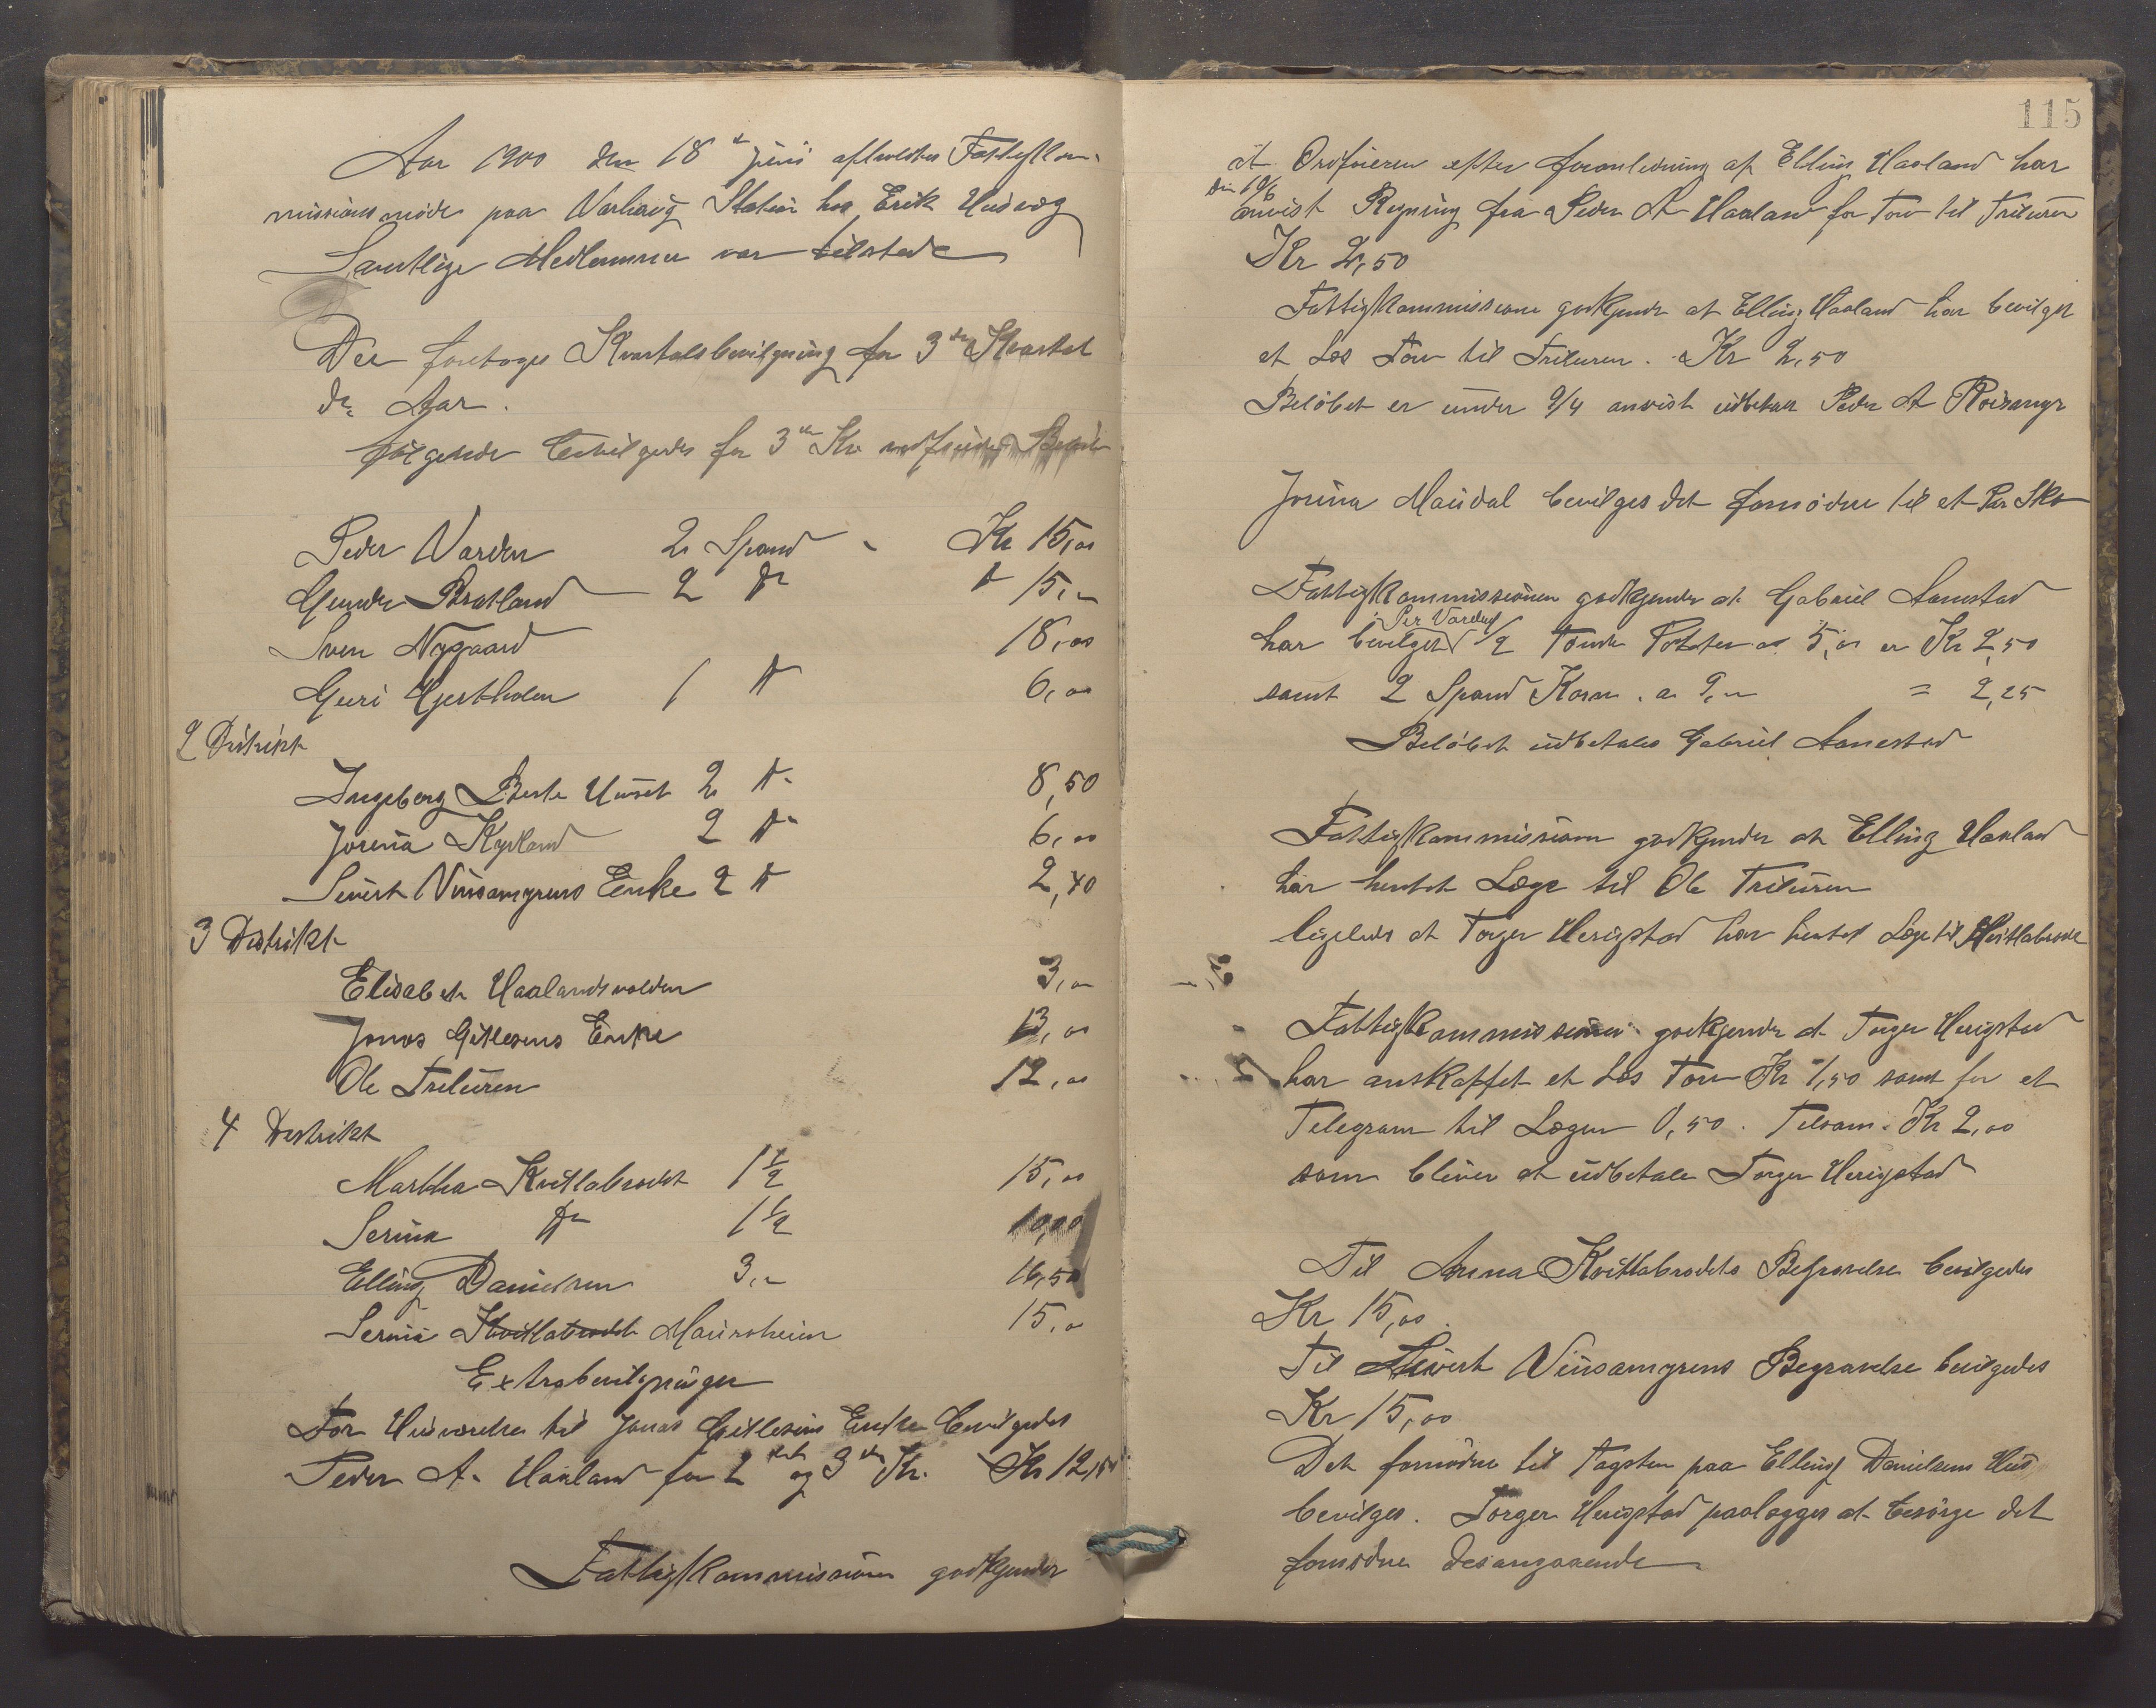 Aar 1900 den 18de Juni afholdtes Fattigkom-
missionsmøde paa Varhaug Station hos Erik Husvæg
Samtlige Medlemmer var tilstede
Der foretoges Kvartalsbevilgning for 3die Kvartal
ds. Aar.
følgende bevilgedes for 3die Kv
Peder Varden 2 Spand - Kr 15,00
Gunder Bratland 2 do do 15,-
Sven Nygaard 18,00
Guri Hjertholen 1 do 6,00
2 Distrikt
Ingeborg Berte 2 do 8,50
Jorina Kyrland 2 do 6,00
Sivert Vinsamyrens Enke 2 do 2,40
3 Distrikt
Elisabeth Haalandsvolden 3,00
Jonas Gitlesens Enke 13,00
Ole Trituren 12,00
4 Distrikt
Martha Kvitlabrodet 1 1/2 15,00
Serina do 1 1/2 10,00
Elling Danielsen 3,- 16,50
Serina Kvitlabrodet Maursheim 15,0
Extrabevilgninger
For Husværelse til Jonas Gitlesens Enke bevilgedes
Peder A. Haaland for 2det og 3die Kv. Kr 12,
Fattigkommissionen godkjender
115
at Ordføreren efter foranledning af Elling Haaland har
den 18/6
anvist Regning fra Peder A Haaland for Torv til Trituren
Kr 2,50
Fattigkommissionen godkjender at Elling Haaland har bevilget
et Læs Torv til Trituren. a Kr 2,50
Beløbet er under 9/4 anvist udbetalt Peder A Roisamyr
Jorina Maudal bevilges det fornødne til et Par Sko
Fattigkommissionen godkjender at Gabriel Aanestad
Per Varden
har bevilget 1/2 Tønde Poteter a 5,00 er Kr 2,50
samt 2 Spand Korn . a 9,- = 2,25
Beløbet udbetales Gabriel Aanestad
Fattigkommissionen godkjender at Elling Haaland
har hentet Læge til Ole Trituren
ligeledes at Torger Herigstad har hentet Læge til Kvitlabrodet
Fattigkommissionen godkjender at Torger Herigstad
har anskaffet et Læs Torv Kr 1,50 samt for et
Telegram til Lægen 0,50. Tilsam. Kr 2,00
som bliver at udbetale Torger Herigstad
Til Anna Kvitlabrodets Begravelse bevilgedes
Kr 15,00.
Til Sivert Vinsamyrens Begravelse bevilgedes
Kr 15,00
Det fornødne til Tagsten paa Elling Danielsens Hus
bevilges. Torger Herigstad paalægges at besørge det
fornødne desangaaende